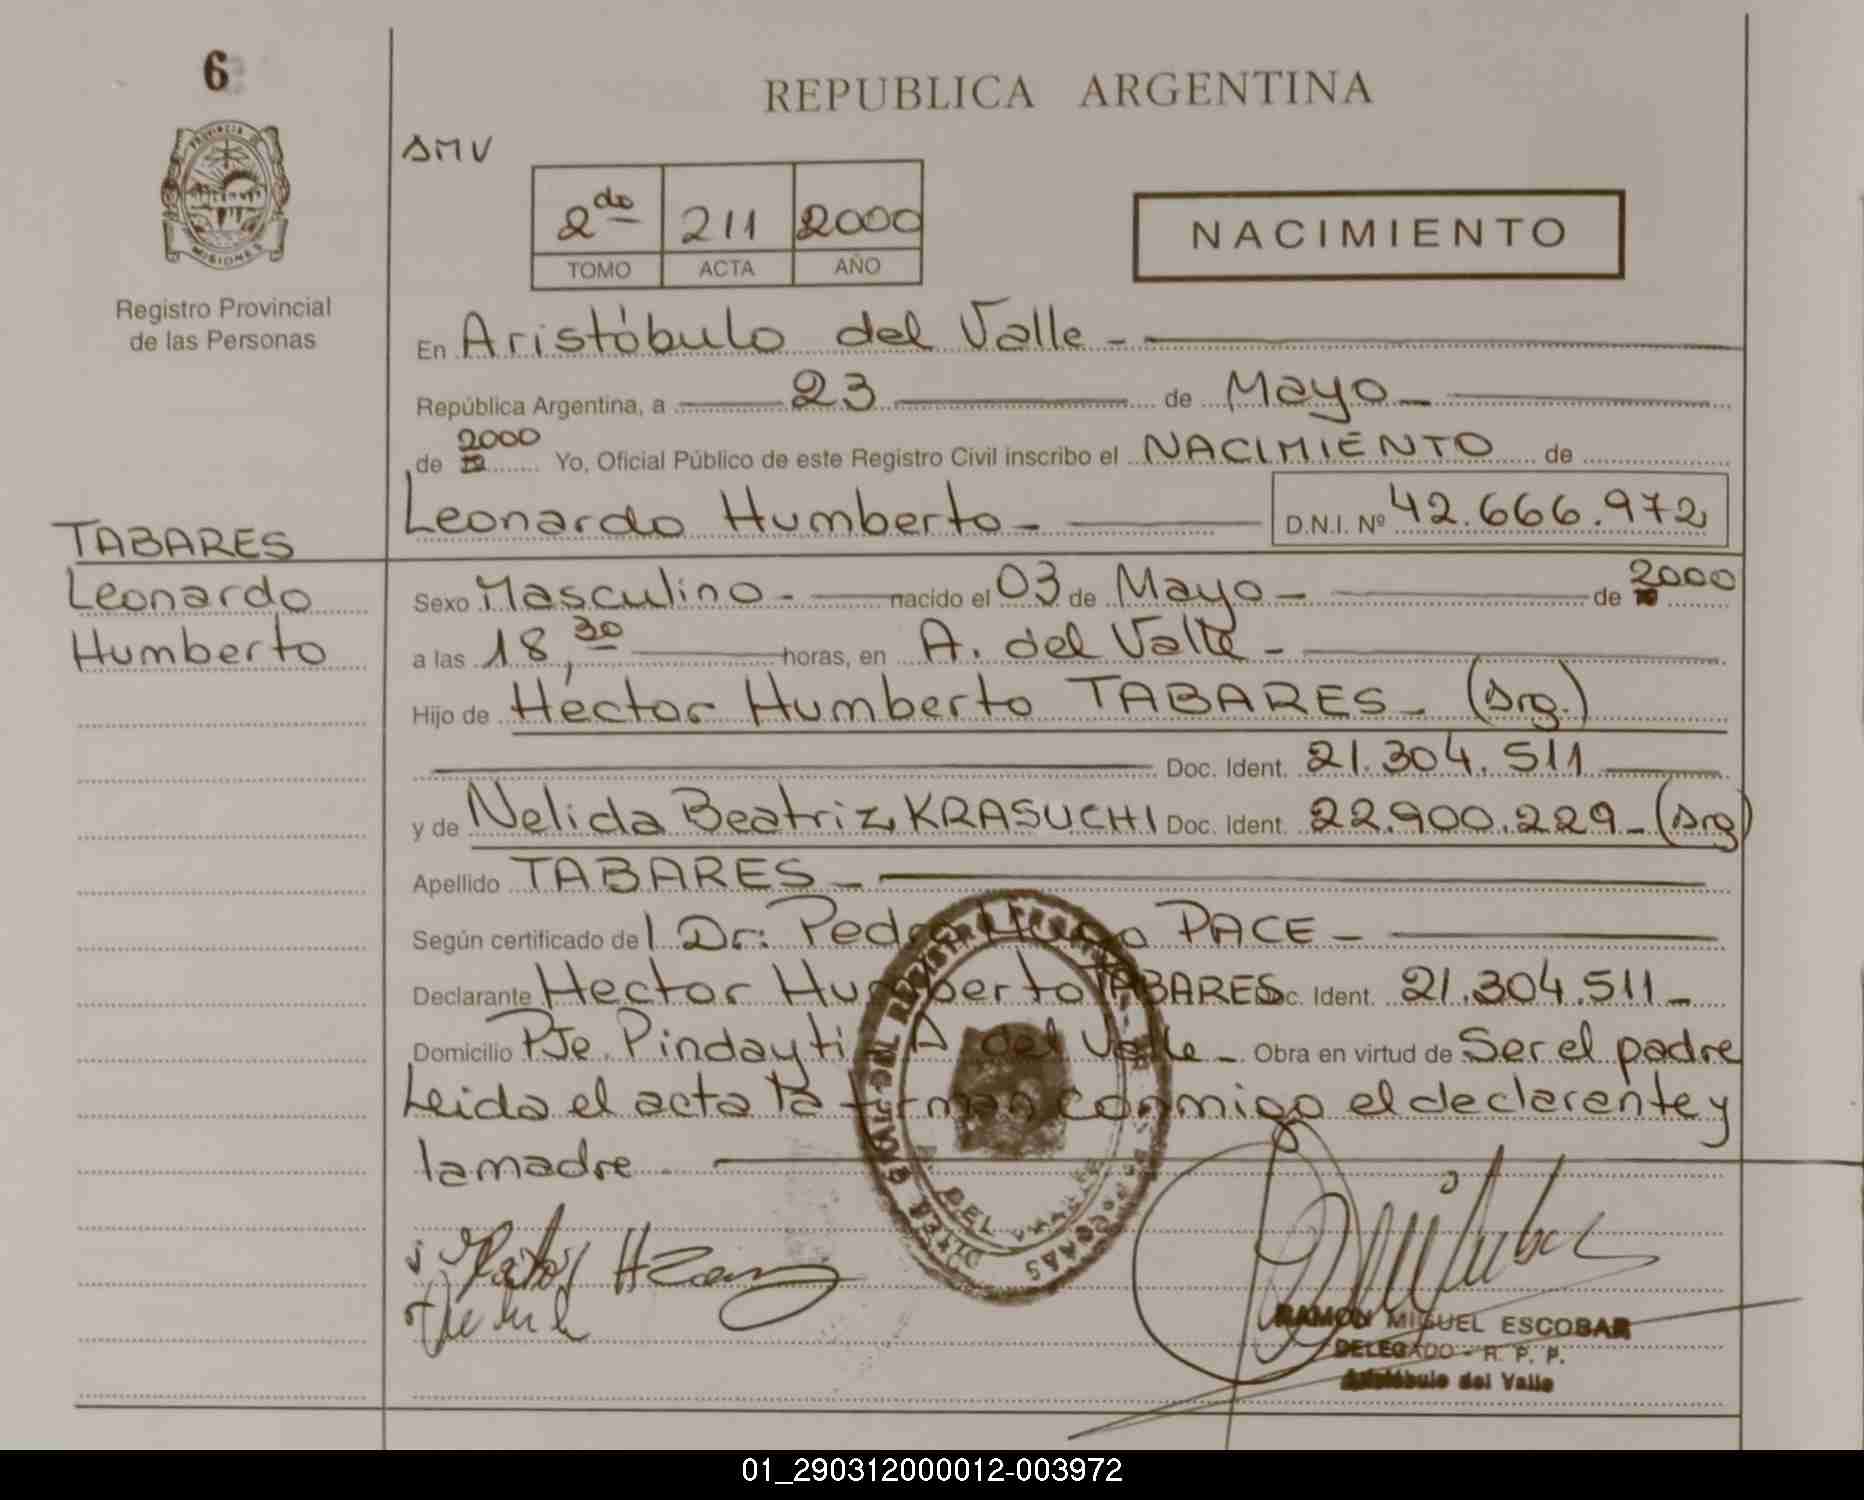 6
PROVINCIA DE
MISIONES
Registro Provincial
de las Personas
REPUBLICA ARGENTINA
SMV
2do 211 2000
TOMO ACTA AÑO
NACIMIENTO
En Aristóbulo del Valle -
República Argentina, a 23 de Mayo -
de 19 2000 Yo, Oficial Público de este Registro Civil inscribo el NACIMIENTO de
Leonardo Humberto - D.N.I. Nº 42.666.972
TABARES
Leonardo
Humberto
Sexo Masculino - nacido el 03 de Mayo - de 19 2000
a las 18,30 horas, en A. del Valle -
Hijo de Héctor Humberto TABARES - (Arg.)
Doc. Ident. 21.304.511
y de Nelida Beatriz KRASUCHI Doc. Ident. 22.900.229 - (Arg)
Apellido TABARES -
Según certificado del Dr: Pedro Hugo PACE -
Declarante Hector Humberto TABARES Doc. Ident. 21.304.511 -
Domicilio PJe. Pindayti A del Valle - Obra en virtud de Ser el padre
Leida el acta la firman conmigo el declarente y
la madre
RAMON MIGUEL ESCOBAR
DELEGADO - R. P. P.
Aristóbulo del Valle
01_290312000012-003972